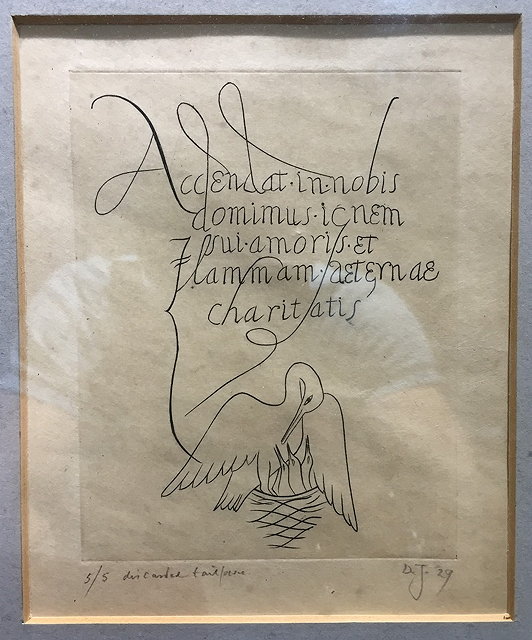 Accendat·in·nobis
domimus·ignem
sui·amoris·et
flammam·aeternae
charitatis
5/5 discarded tailpiece
D.J. '29